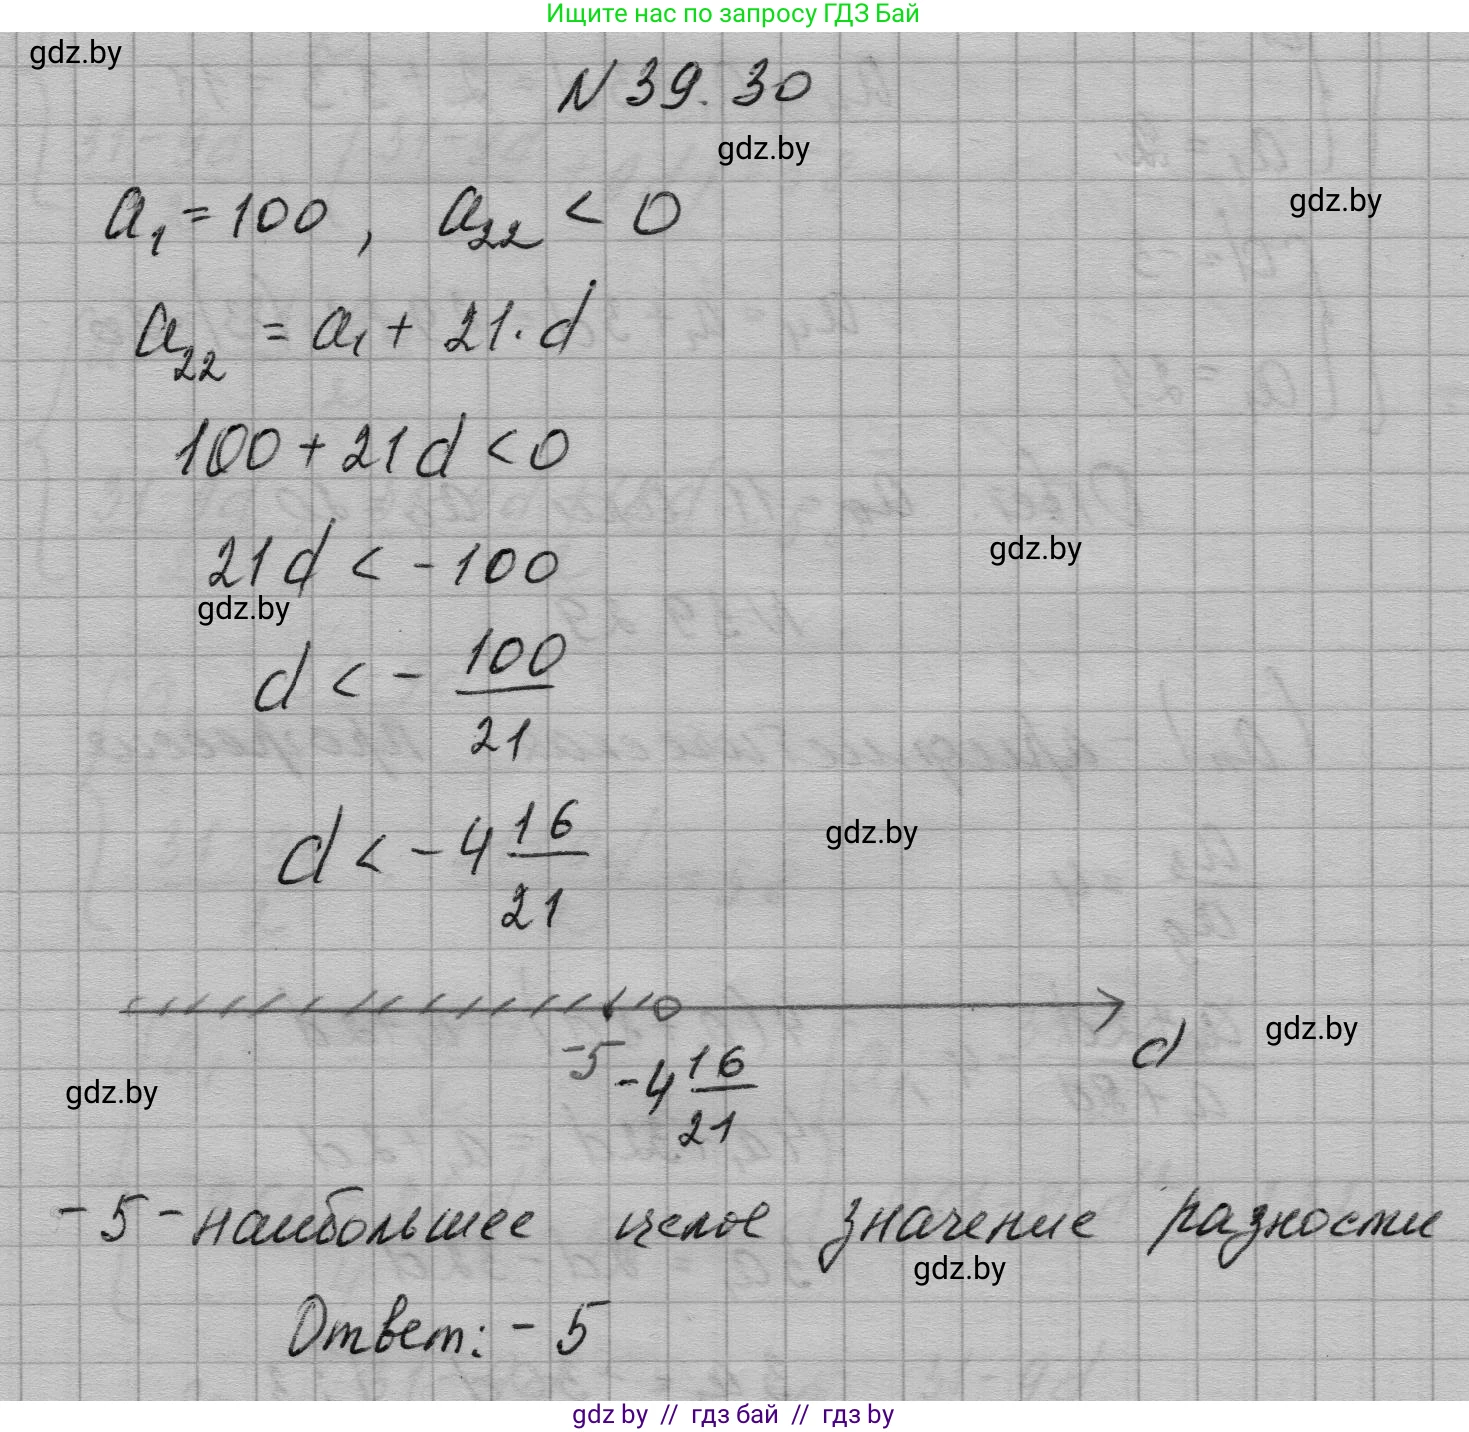 Ищите нас по запросу ГДЗ Бай
gdz.by
N 39.30
gdz.by
gdz.by
a₁ = 100, a₂₂ < 0
a₂₂ = a₁ + 21 · d
100 + 21d < 0
gdz.by
21d < -100
gdz.by
d < - 100/21
d < -4 16/21
gdz.by
-5 -4 16/21 d
gdz.by
gdz.by
-5 - наибольшее целое значение разности
gdz.by
Ответ: -5
gdz by // гдз бай // гдз by